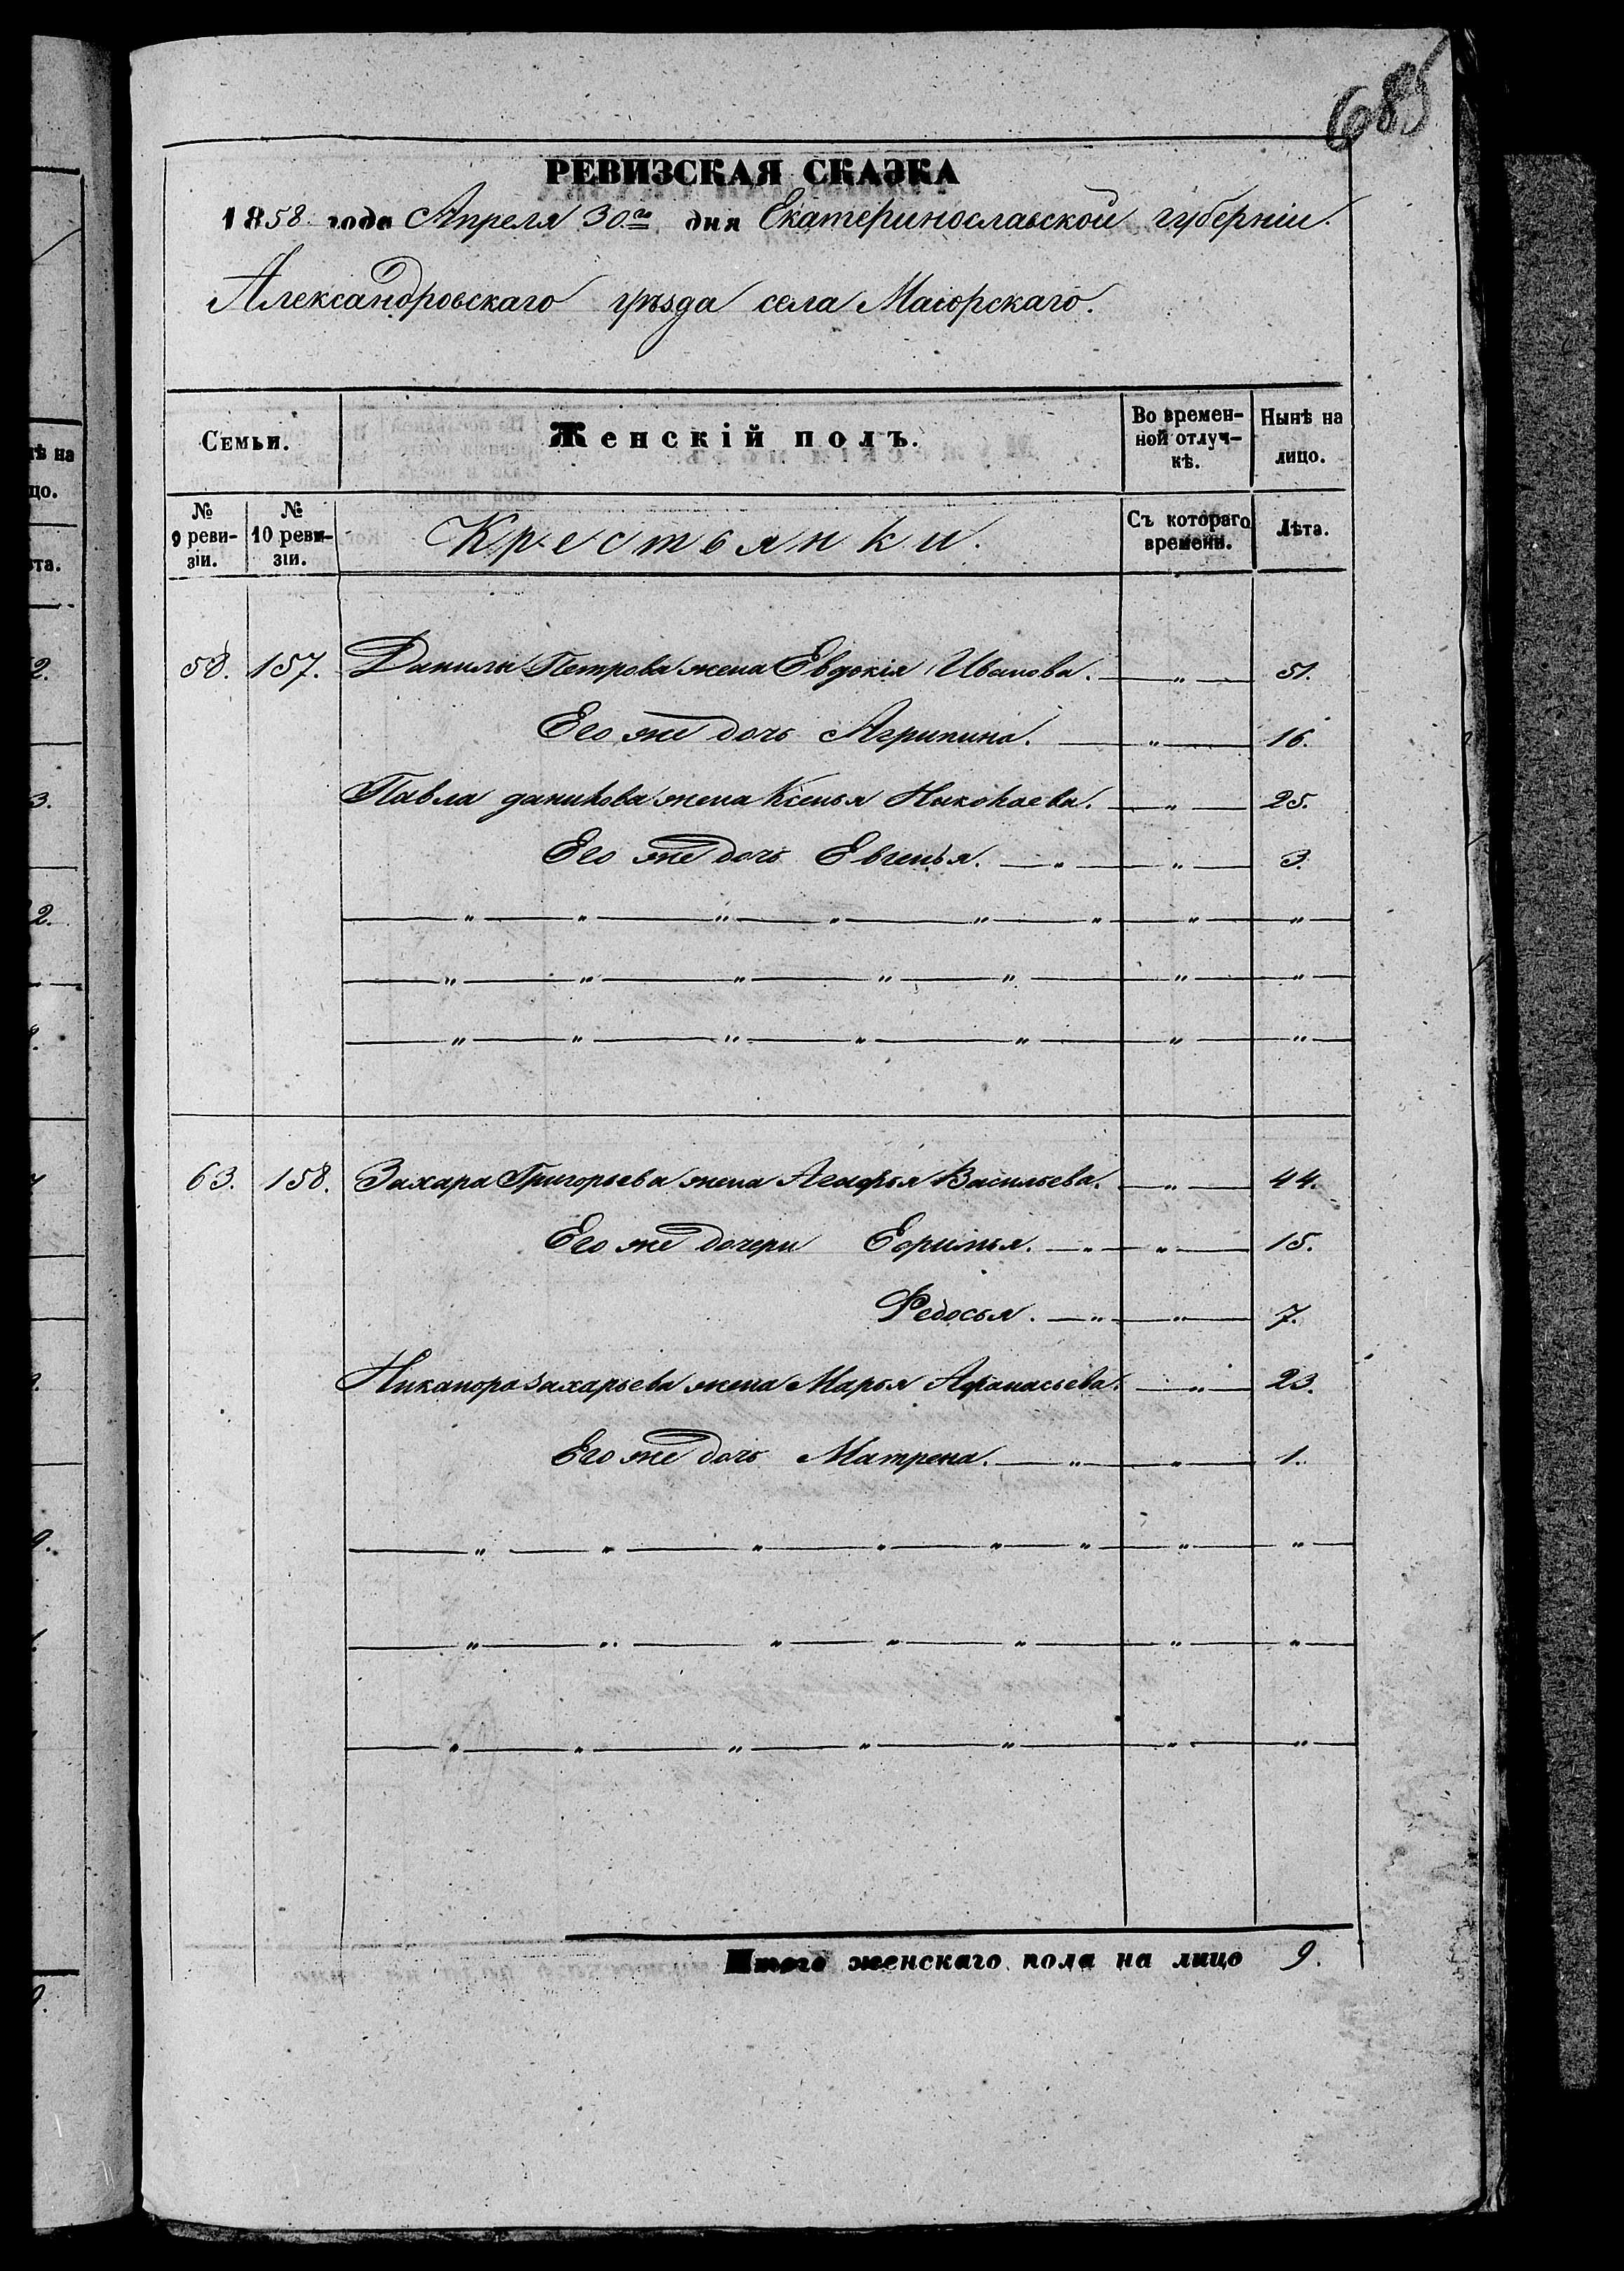 685
РЕВИЗСКАЯ СКАЗКА
1858 года Апреля 30го дня Екатеринославской губерніи.
Александровскаго уѣзда села Маіорскаго.
Семьи. Женскій полъ. Во времен-ной отлуч-кѣ. Нынѣ на лицо.
№ 9 реви-зіи. № 10 реви-зіи. Крестьянки. Съ котораго времени. Лѣта.
58. 157. Данилы Петрова жена Евдокія Иванова. — " — 51.
Его же дочь Агрипина. — " — 16.
Павла данилова жена Ксенья Николаева. — " — 25.
Его же дочь Евгенья. — " — " — 3.
— " — " — " — " — " — " — " — " —
— " — " — " — " — " — " — " —
— " — " — " — " — " — " — " —
63. 158. Захара Григорьева жена Агафья Васильева. — " — 44.
Его же дочери Ефимья. — " — " — 15.
Федосья. — " — " — 7.
Никанора захарьева жена Марья Афанасьева. — " — 23.
Его же дочь Матрена. — " — " — 1.
— " — " — " — " — " — " — " — " —
— " — " — " — " — " — " — " —
— " — " — " — " — " — " — " —
Итого женскаго пола на лицо 9.